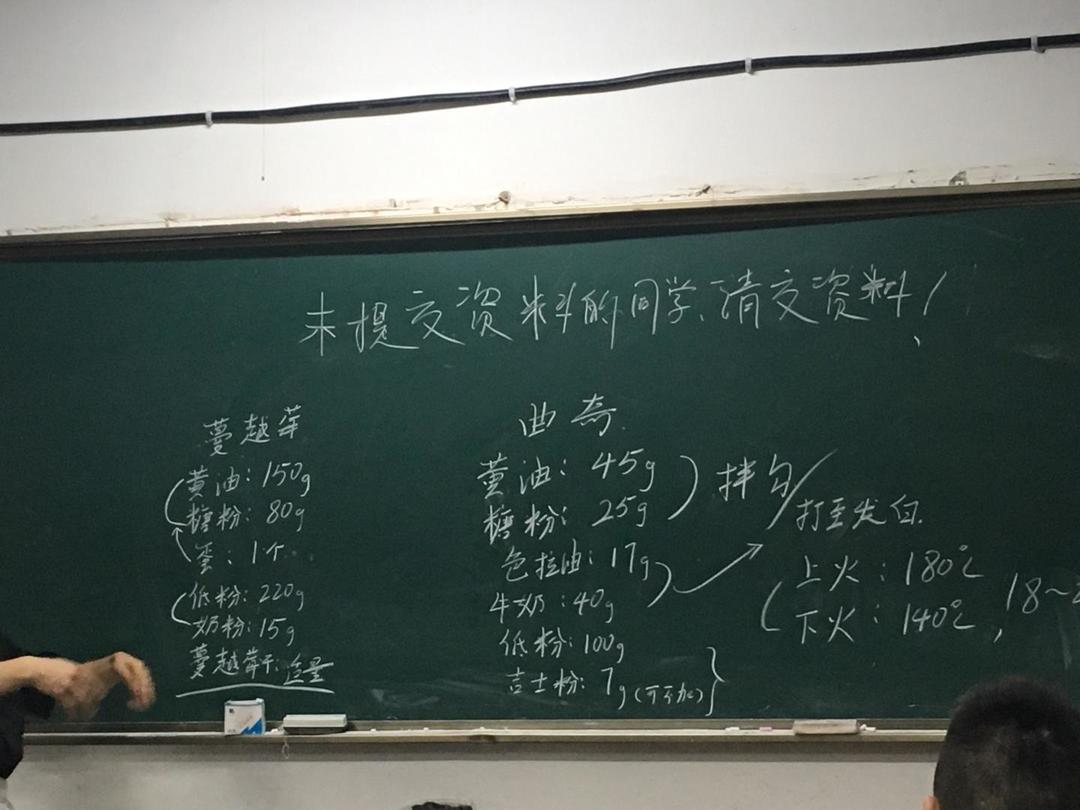 未提交资料的同学、请交资料！
蔓越莓
黄油：150g
糖粉：80g
蛋：1个
低粉：220g
奶粉：15g
蔓越莓干：适量
曲奇
黄油：45g
糖粉：25g
色拉油：17g
牛奶：40g
低粉：100g
吉士粉：7g（可不加）
拌匀/打至发白
上火：180℃
下火：140℃，18~